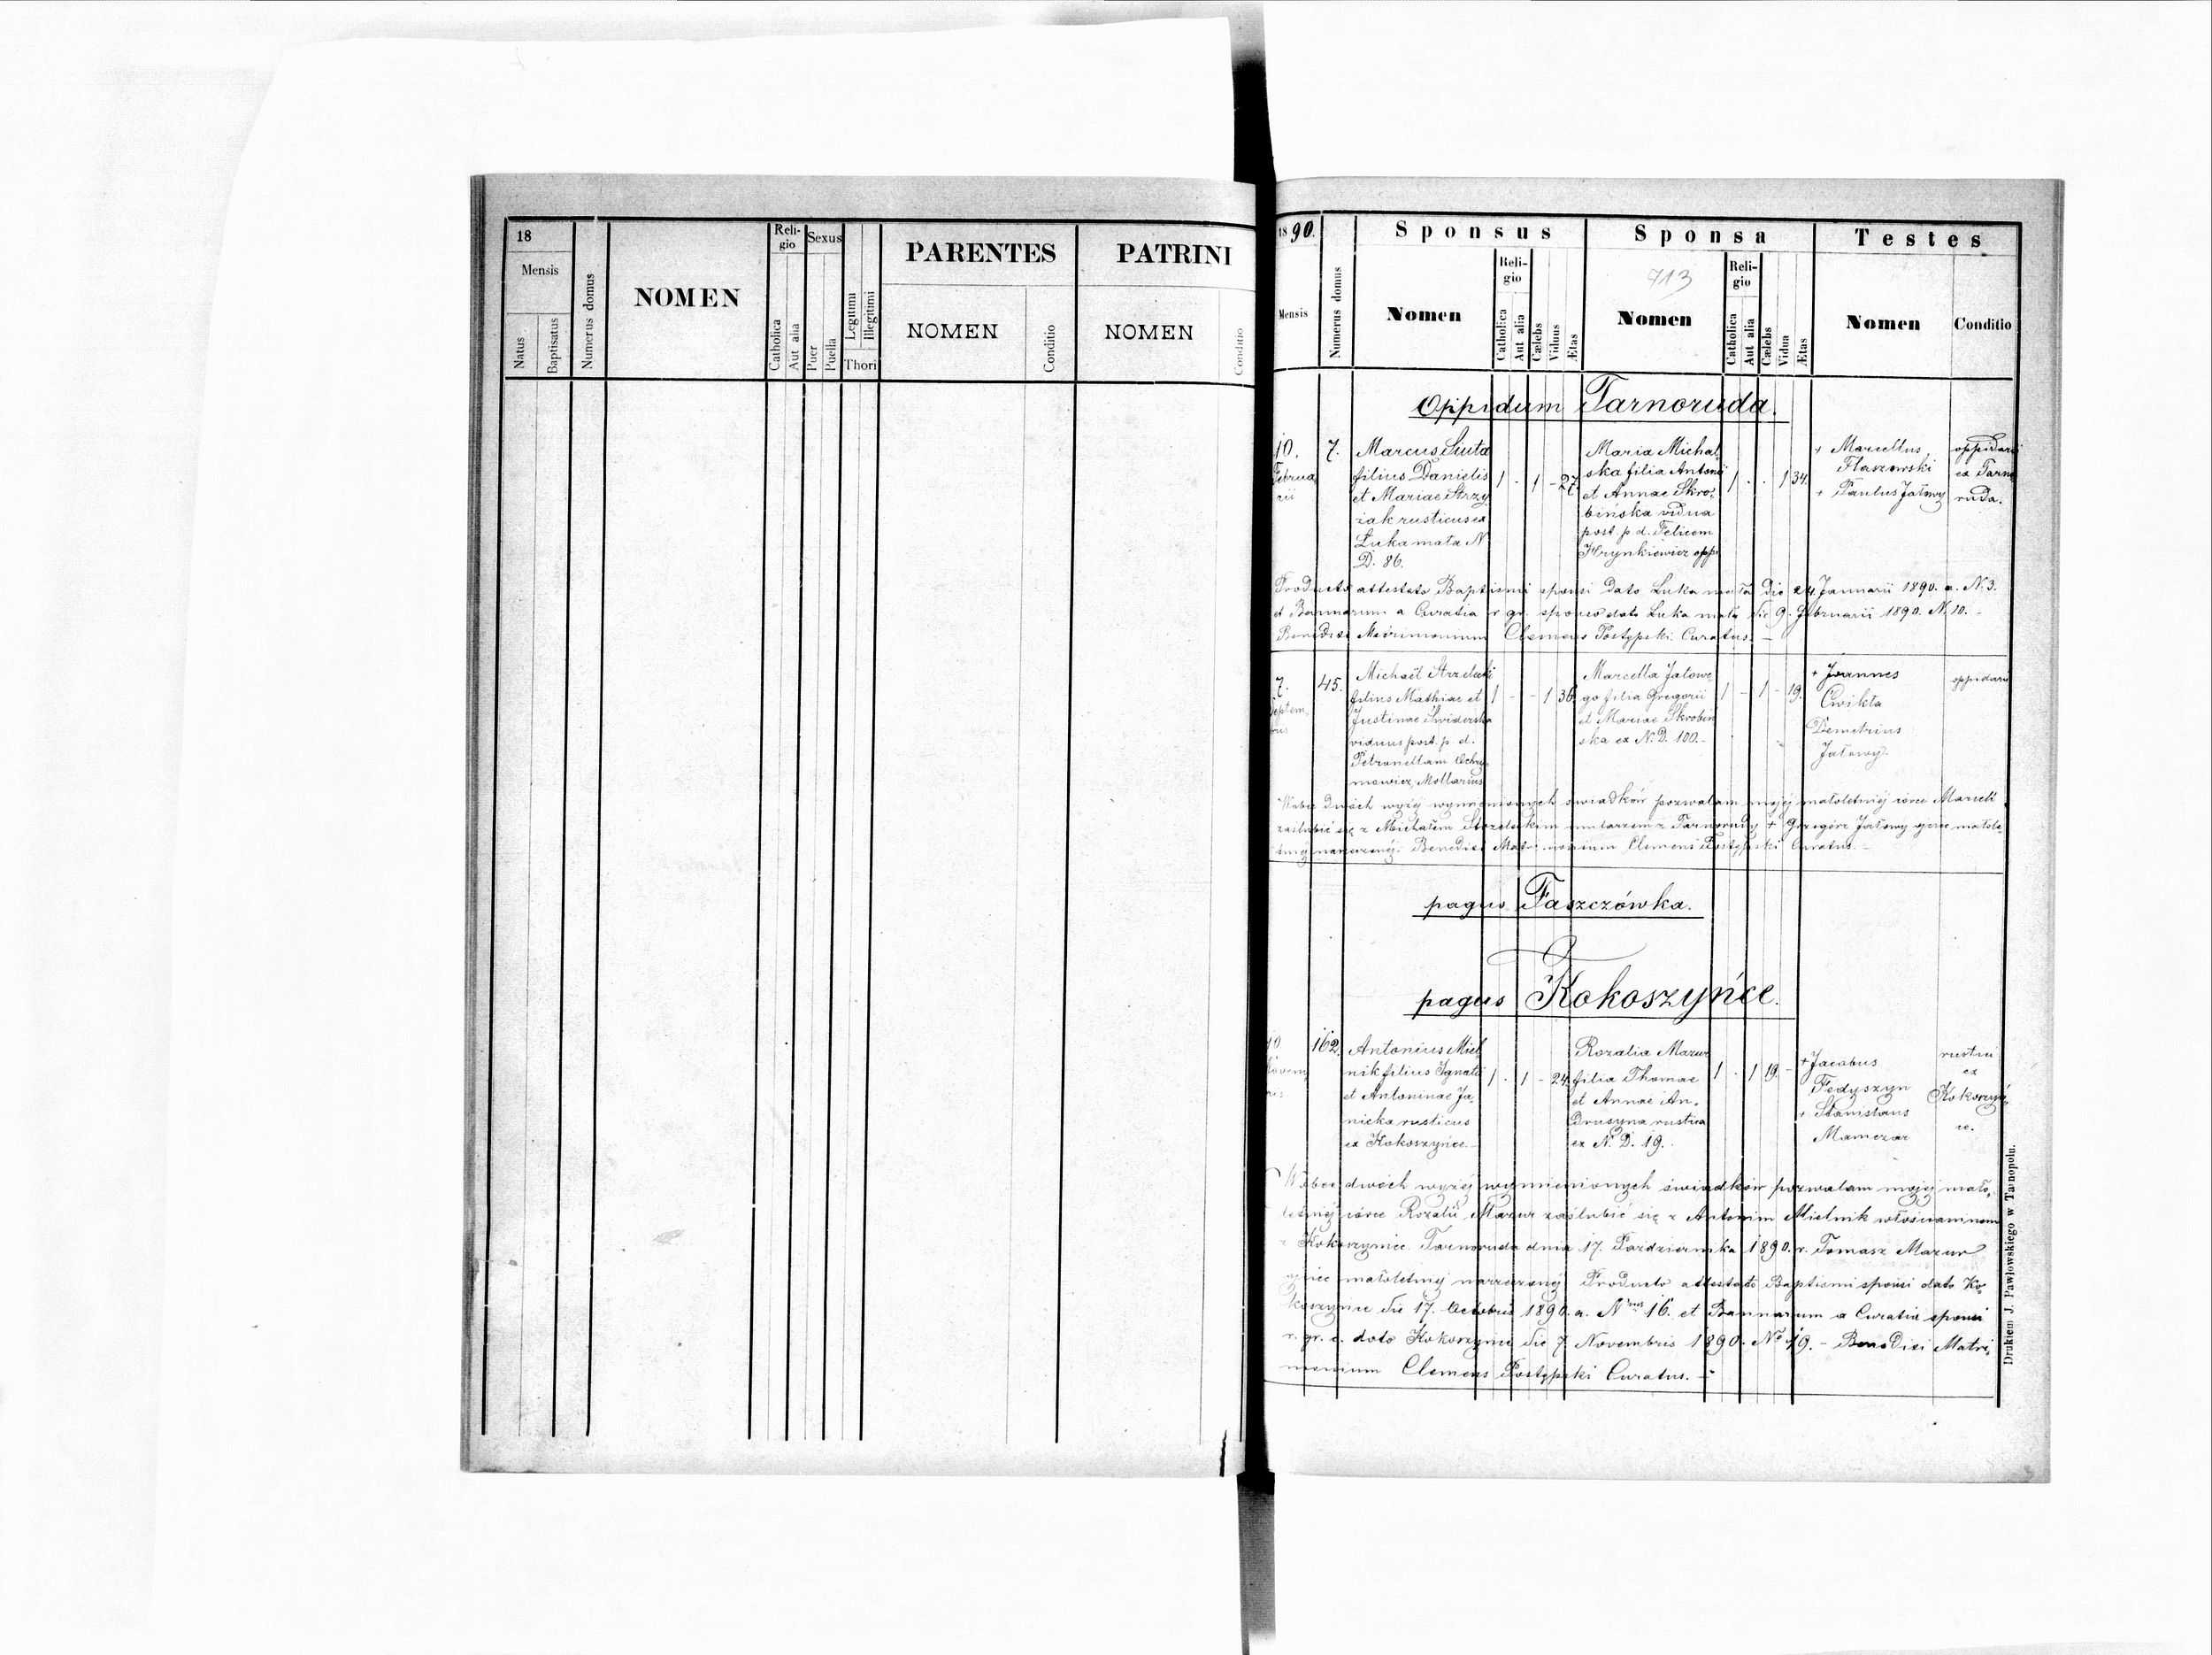 18
Mensis
Natus
Baptisatus
Numerus domus
NOMEN
Reli-
gio
Catholica
Aut alia
Sexus
Puer
Puella
Legitimi
Illegitimi
Thori
PARENTES
NOMEN
Conditio
PATRINI
NOMEN
Conditio
1890.
Mensis
Numerus domus
Sponsus
Nomen
Reli-
gio
Catholica
Aut alia
Cælebs
Viduus
Ætas
Sponsa
713
Nomen
Reli-
gio
Catholica
Aut alia
Cælebs
Vidua
Ætas
Testes
Nomen
Conditio
Oppidum Tarnoruda.
10.
Februa
rii
7.
Marcus Siuta
filius Danielis
et Mariae Strzy
żak rusticus ex
Łuka mała N
D. 86.
1 . 1 - 27.
Maria Michal
ska filia Antonii
et Annae Skro-
bińska vidua
post p. d. Felicem
Hrynkiewicz opp.
1 . . 1 34.
+ Marcellus
Flaszewski
+ Paulus Jałowy
oppidani
ex Tarno
ruda.
Producto attestato Baptismi sponsi dato Łuka mała die 24. Januarii 1890. a. N. 3.
et Bannorum a Curatia r. gr. sponso dato Łuka mała die 9. Februarii 1890. N. 10. -
Benedixi Matrimonium Clemens Postępski Curatus. -
7.
Septem
bris
45.
Michaël Strzelecki
filius Mathiae et
Justinae Świderska
viduus post. p. d.
Petronellam Ochry
mowicz, Mollarius
1 - - 1 36.
Marcella Jałowe
go filia Gregorii
et Mariae Skrobiń
ska ex N. D. 100. -
1 - 1 - 19.
+ Joannes
Ćwikła
Demetrius
Jałowy.
oppidani
Wobec dwóch wyżej wymienionych świadków pozwalam mojej małoletniej córce Marceli
zaślubić się z Michałem Strzeleckim z Tarnorudy + Grzegórz Jałowy ojciec małole
tniej narzeczonej. Benedixi Matrimonium Clemens Postępski Curatus. -
pagus Faszczówka.
pagus Kokoszyńce.
10
Novem
bris
162.
Antonius Miel
nik filius Ignatii
et Antoninae Ja-
nicka rusticus
ex Kokoszyńce. -
1 . 1 - 24.
Rozalia Mazur
filia Thomae
et Annae An-
drusyna rustica
ex N. D. 19. .
1 . 1 19. -
+ Jacobus
Fedyszyn
+ Stanislaus
Mamczar
rustici
ex
Kokoszyń-
ce.
Wobec dwóch wyżej wymienionych świadków pozwalam mojej mało-
letniej córce Rozalii Mazur zaślubić się z Antonim Mielnik włościaninem
z Kokoszyniec. Tarnoruda dnia 17. Października 1890. r. Tomasz Mazur
ojciec małoletniej narzeczonej. Producto attestato Baptismi sponsi dato Ko-
koszyńce die 17. Octobris 1890. a. N 16. et Bannorum a Curatia sponsi
r. gr. c. dato Kokoszyńce die 7. Novembris 1890. No 49. - Benedixi Matri-
monium Clemens Postępski Curatus. -
Drukiem J. Pawłowskiego w Tarnopolu.